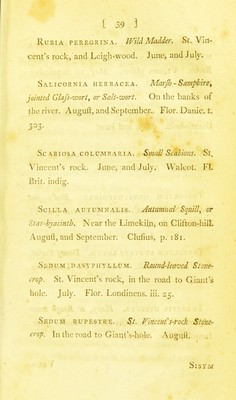 [ 39 ]
RUBIA PEREGRINA. Wild Madder. St. Vin-
cent's rock, and Leigh-wood. June, and July.
SALICORNIA HERBACEA. Marsh-Samphire,
jointed Glass-wort, or Salt-wort. On the banks of
the river. August, and September. Flor. Danic. t.
303.
SCABIOSA COLUMBARIA. Small Scabious. St.
Vincent's rock. June, and July. Walcot. Fl.
Brit. indig.
SCILLA AUTUMNALIS. Autumnal Squill, or
Star-hyacinth. Near the Limekiln, on Clifton-hill.
August, and September. Clusius, p. 181.
SEDUM DASYPHYLLUM. Round-leaved Stone-
crop. St. Vincent's rock, in the road to Giant's
hole. July. Flor. Londinens. iii. 25.
SEDUM RUPESTRE. St. Vincent's-rock Stone-
crop. In the road to Giant's-hole. August.
SISYM